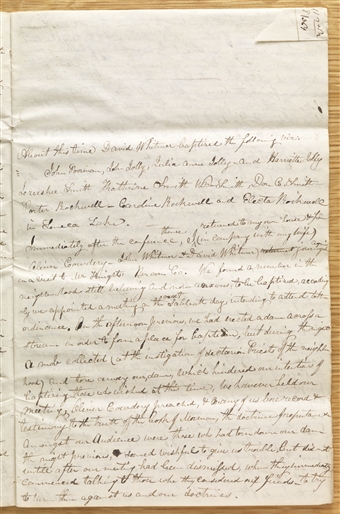 About this time David Whitmer baptized the following viz.
John Poorman, John Jolly, Julia Anne Jolly, and Harriette Jolly
Jerushee Smith Katherine Smith Wm Smith, Don C. Smith
Porter Rockwell— Caroline Rockwell and Electa Rockwell
in Seneca Lake.
Immediately after the conference, I returned to my own house, & from
thence (in company with my wife)
Oliver Cowdery, John Whitmer & David Whitmer, journeyed
on a visit to Mr Knights Broom Co. We found a number in the
neighborhood still believing and now anxious to be baptized, according
ly we appointed a meeting on the Sabbath day, intending to attend to the
ordinance, On the afternoon previous, we had erected a dam across a
stream in order to form a place for baptism, but during the night
A mob collected (at the instigation of sectarian Priests of the neighbor
hood) and tore away our dam, which hindered our intention of
baptizing those who wished at the time, We however held our
meeting, Oliver Cowdery preached, & many of us bore record &
testimony to the truth of the book of Mormon, the doctrine of repentance
Amongst our Audience were those who had torn down our dam
the night previous, & seemed wishful to give us trouble, but did not
until after our meeting had been dismissed, when they immediately
commenced talking to those who they considered our friends, to try
to turn them against us and our doctrines.